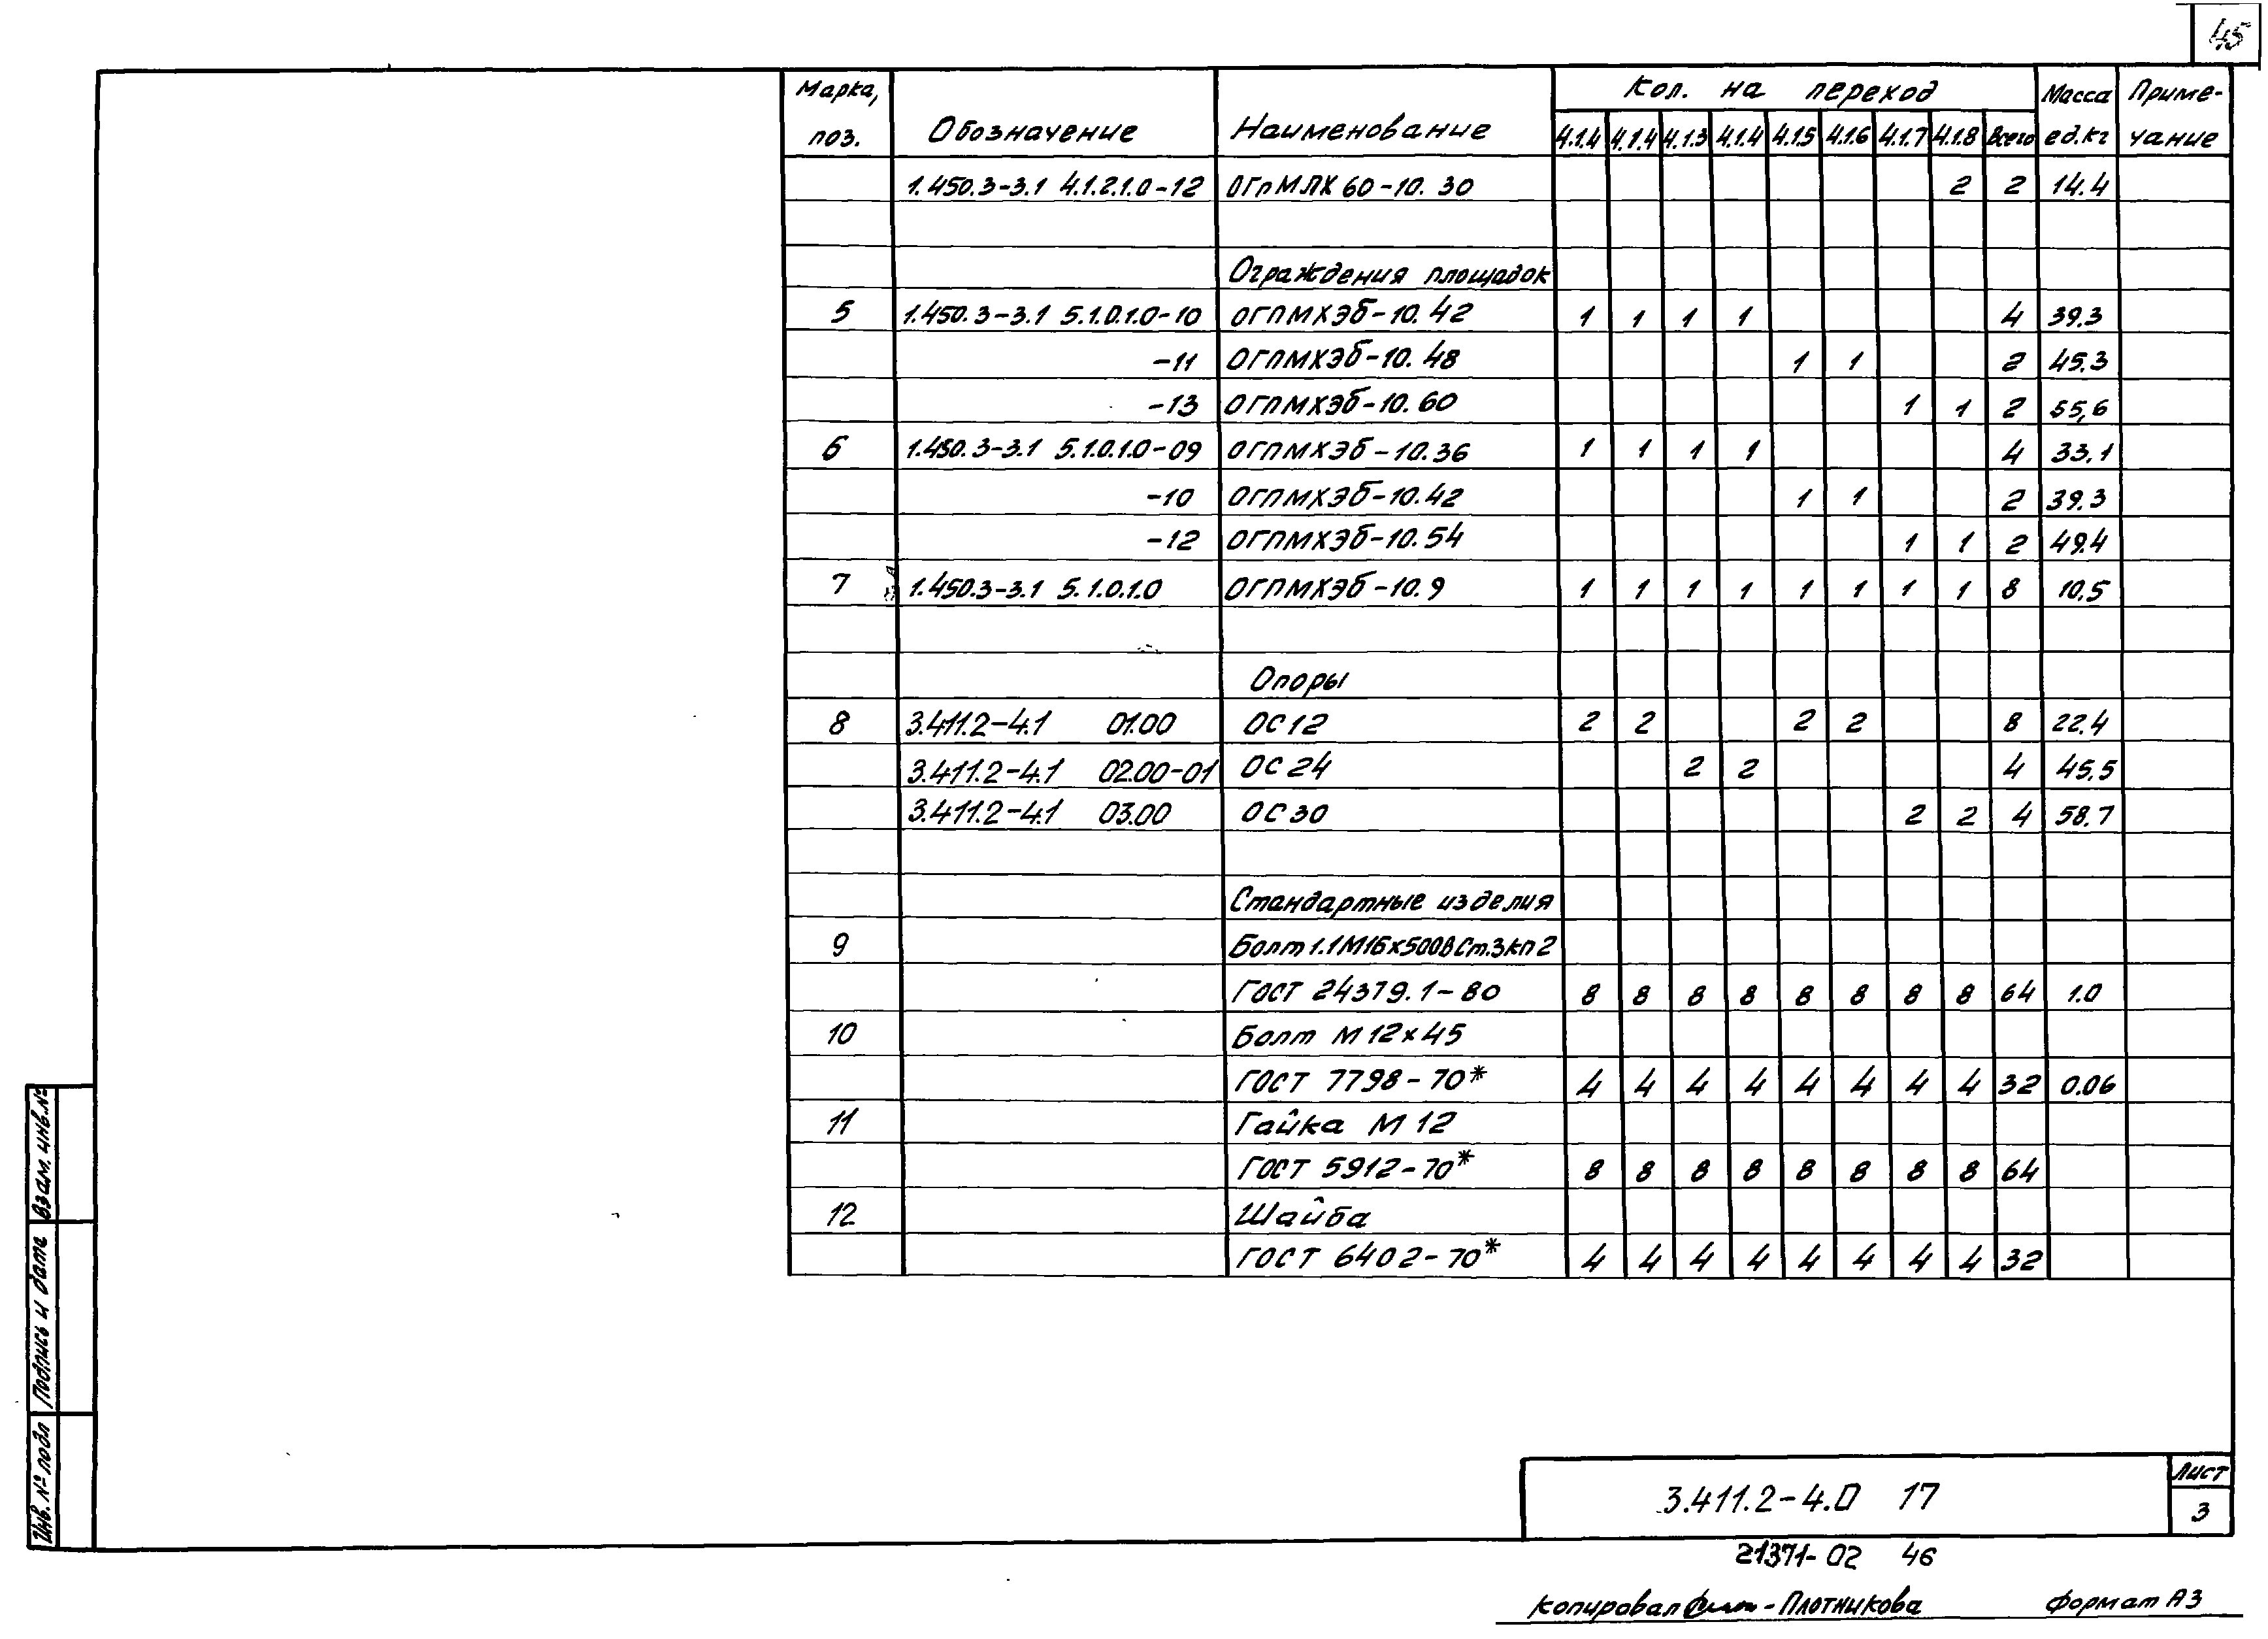 45
Марка, поз. Обозначение Наименование Кол. на переход Масса ед.кг Приме-чание
4.1.4 4.1.4 4.1.3 4.1.4 4.1.5 4.1.6 4.1.7 4.1.8 Всего
1.450.3-3.1 4.1.2.1.0-12 ОГпМЛХ 60-10.30 2 2 14.4
Ограждения площадок
5 1.450.3-3.1 5.1.0.1.0-10 ОГПМХЭб-10.42 1 1 1 1 4 39.3
-11 ОГПМХЭб-10.48 1 1 2 45.3
-13 ОГПМХЭб-10.60 1 1 2 55,6
6 1.450.3-3.1 5.1.0.1.0-09 ОГПМХЭб-10.36 1 1 1 1 4 33.1
-10 ОГПМХЭб-10.42 1 1 2 39.3
-12 ОГПМХЭб-10.54 1 1 2 49.4
7 1.450.3-3.1 5.1.0.1.0 ОГПМХЭб-10.9 1 1 1 1 1 1 1 1 8 10.5
Опоры
8 3.411.2-4.1 01.00 ОС12 2 2 2 2 8 22.4
3.411.2-4.1 02.00-01 ОС24 2 2 4 45.5
3.411.2-4.1 03.00 ОС30 2 2 4 58.7
Стандартные изделия
9 Болт 1.1М16х500ВСт.3кп2
ГОСТ 24379.1-80 8 8 8 8 8 8 8 8 64 1.0
10 Болт М12х45
ГОСТ 7798-70* 4 4 4 4 4 4 4 4 32 0.06
11 Гайка М12
ГОСТ 5912-70* 8 8 8 8 8 8 8 8 64
12 Шайба
ГОСТ 6402-70* 4 4 4 4 4 4 4 4 32
Взам. инв.№
Подпись и дата
Инв. № подл
3.411.2-4.0 17
Лист
3
21371-02 46
Копировал - Плотникова Формат А3